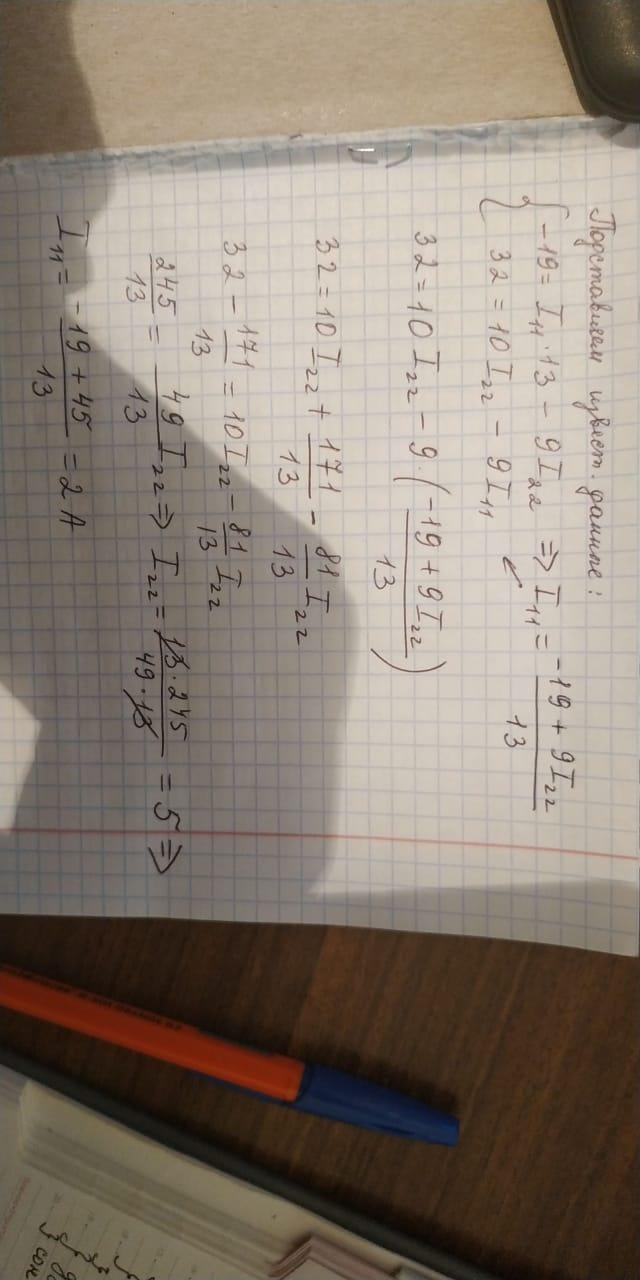 Подставляем извест. данные:
{ -19 = I₁₁·13 - 9I₂₂ => I₁₁ = (-19 + 9I₂₂)/13
32 = 10I₂₂ - 9I₁₁ ↙
32 = 10I₂₂ - 9·((-19 + 9I₂₂)/13)
32 = 10I₂₂ + 171/13 - 81/13 I₂₂
32 - 171/13 = 10I₂₂ - 81/13 I₂₂
245/13 = 49/13 I₂₂ => I₂₂ = 13·245/49·13 = 5 =>
I₁₁ = (-19 + 45)/13 = 2 A